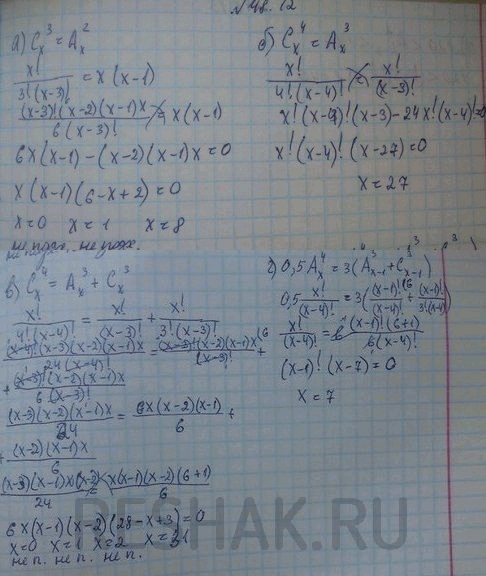 № 48.12
а) C_x^3 = A_x^2
x! / 3!(x-3)! = x(x-1)
(x-3)!(x-2)(x-1)x / 6(x-3)! = x(x-1)
6x(x-1)-(x-2)(x-1)x=0
x(x-1)(6-x+2)=0
x=0 x=1 x=8
не подх. не подх.
б) C_x^4 = A_x^3
x! / 4!(x-4)! = x! / (x-3)!
x!(x-3)-24x!(x-4)!=0
x!(x-4)!(x-27)=0
x=27
в) C_x^4 = A_x^3 + C_x^3
x! / 4!(x-4)! = x! / (x-3)! + x! / 3!(x-3)!
(x-4)!(x-3)(x-2)(x-1)x / 24(x-4)! = (x-3)!(x-2)(x-1)x / (x-3)! +
+ (x-3)!(x-2)(x-1)x / 6(x-3)!
(x-3)(x-2)(x-1)x / 24 = 6x(x-2)(x-1) / 6 +
+ (x-2)(x-1)x / 6
(x-3)(x-1)x(x-2) / 24 = x(x-1)(x-2)(6+1) / 6
6x(x-1)(x-2)(28-x+3)=0
x=0 x=1 x=2 x=31
не п. не п. не п.
г) 0,5A_x^4 = 3(A_{x-1}^3 + C_{x-1}^3)
0,5 x! / (x-4)! = 3((x-1)! / (x-4)! + (x-1)! / 3!(x-4)!)
x! / (x-4)! = 6 (x-1)!(6+1) / 6(x-4)!
(x-1)!(x-7)=0
x=7
RESHAK.RU